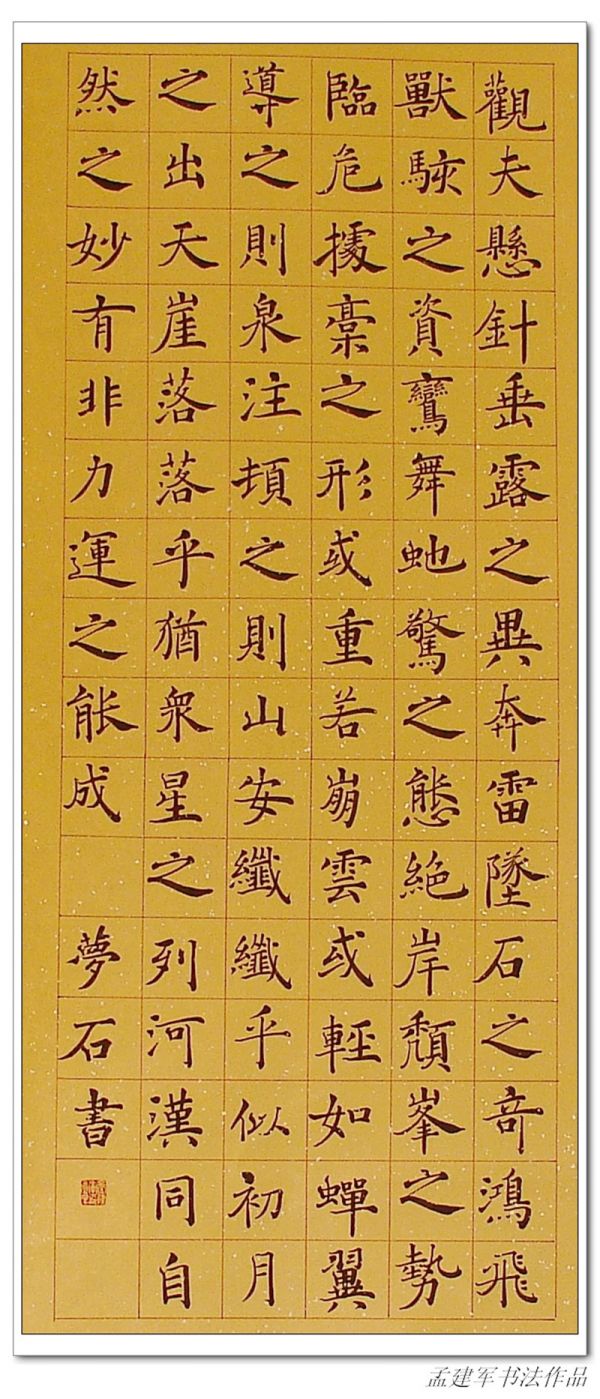 觀夫懸針垂露之異奔雷墜石之奇鴻飛
獸駭之資鸞舞虵驚之態絶岸頹峯之勢
臨危據槀之形或重若崩雲或輕如蟬翼
導之則泉注頓之則山安纖纖乎似初月
之出天崖落落乎猶衆星之列河漢同自
然之妙有非力運之能成
夢石書
孟建军书法作品